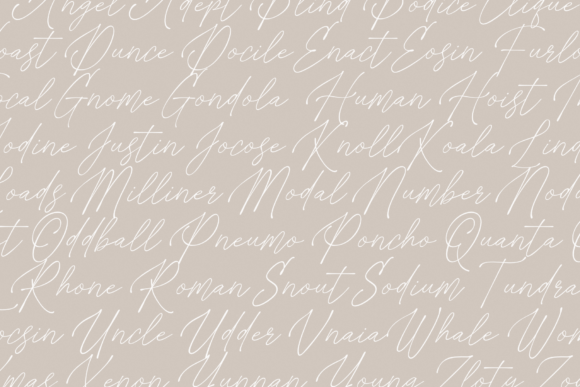 Angel Adept Blind Bodice Clique
oast Dunce Docile Enact Eosin Furlo
ocal Gnome Gondola Human Hoist
Iodine Justin Jocose Knoll Koala Lind
Loads Milliner Modal Number Nod
t Oddball Pneumo Poncho Quanta
Rhone Roman Snout Sodium Tundra
ocsin Uncle Udder Vnaia Whale Wor
mas Xenon Yunnan Young Zloty Zo